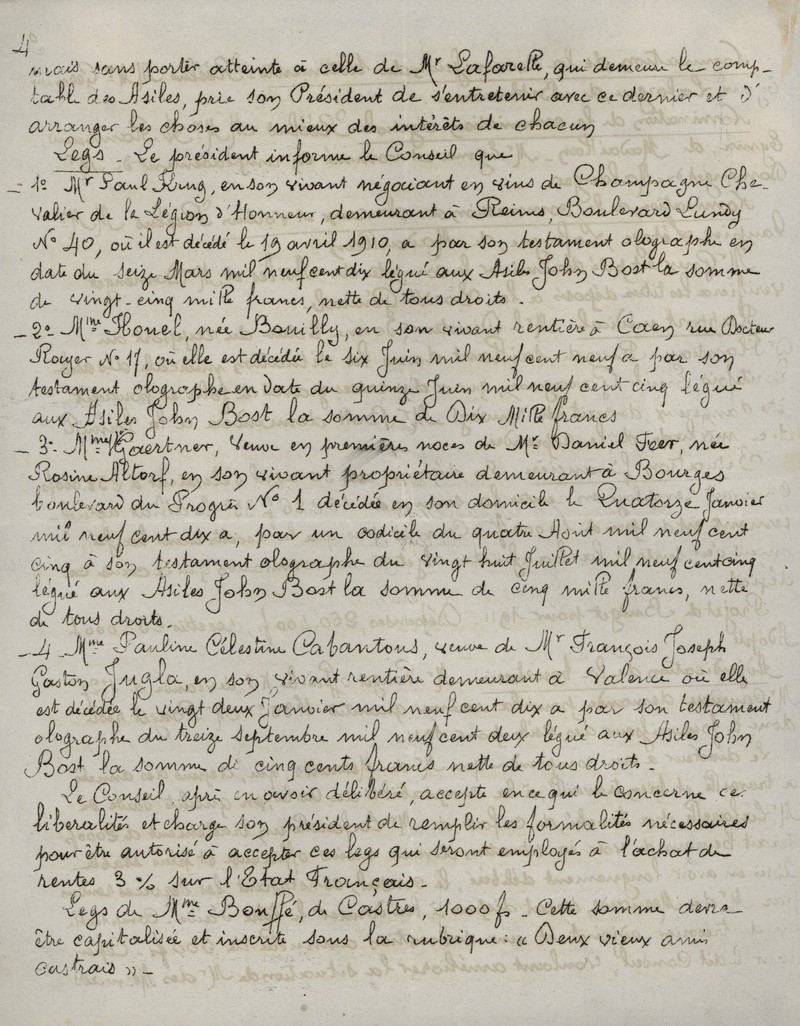 4
mais sans porter atteinte à celle de Mr Lafarelle, qui demeure le comp-
table des Asiles, prie son Président de s'entretenir avec ce dernier et d'
arranger les choses au mieux des intérêts de chacun
Legs - Le président informe le Conseil que
- 1o Mr Paul King, en son vivant négociant en vins de Champagne Che-
valier de la Légion d'Honneur, demeurant à Reims, Boulevard Lundy
No 40, où il est décédé le 19 avril 1910, a par son testament olographe en
date du seize Mars mil neuf cent dix légué aux Asiles John Bost la somme
de vingt-cinq mille francs, nette de tous droits.
- 2o Mme Houel, née Bouilly, en son vivant rentière à Caen rue Docteur
Rayer No 17, où elle est décédée le six Juin mil neuf cent neuf a par son
testament olographe en date du quinze Juin mil neuf cent cinq légué
aux Asiles John Bost la somme de Dix Mille francs
- 3o Mme Gaertner, veuve en premières noces de Mr Daniel Feer, née
Rosine Altorf, en son vivant propriétaire demeurant à Bourges
boulevard du Progrès No 1 décédée en son domicile le Quatorze Janvier
mil neuf cent dix a, par un codicile du quatre Août mil neuf cent
cinq à son testament olographe du vingt huit Juillet mil neuf cent cinq
légué aux Asiles John Bost la somme de cinq mille francs, nette
de tous droits.
- 4 Mme Pauline Célestine Cabantous, veuve de Mr François Joseph
Gaston Jugla, en son vivant rentière demeurant à Valence où elle
est décédée le vingt deux Janvier mil neuf cent dix a par son testament
olographe du treize septembre mil neuf cent deux légué aux Asiles John
Bost la somme de cinq cents francs nette de tous droits.
Le Conseil, après en avoir délibéré, accepte en ce qui le concerne ces
libéralités et charge son président de remplir les formalités nécessaires
pour être autorisé à accepter ces legs qui seront employés à l'achat de
rentes 3 % sur l'Etat Français.
Legs de Mme Bouffé, de Castres, 1000 f. Cette somme devra
être capitalisée et inscrite sous la rubrique : « Deux vieux amis
castrais » -